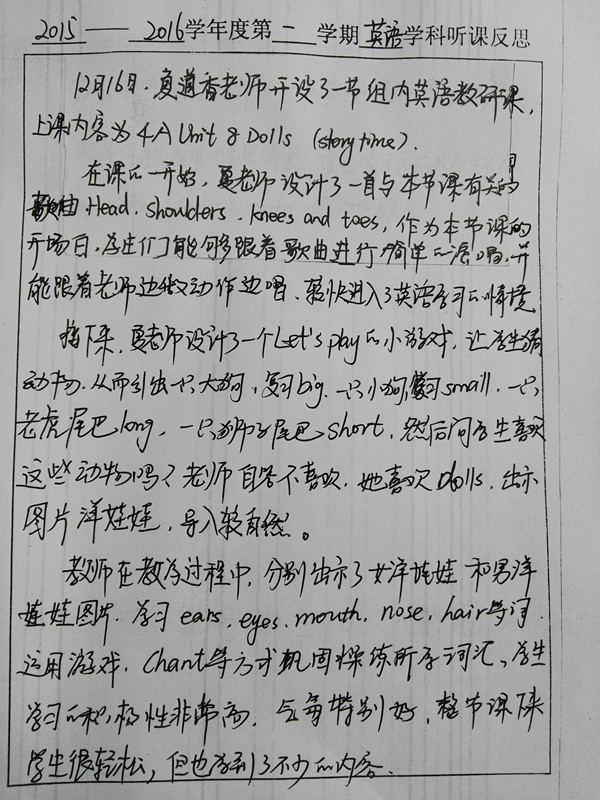 2015——2016学年度第一学期英语学科听课反思
12月16日,夏道香老师开设了一节组内英语教研课,
上课内容为4A Unit 8 Dolls (story time).
在课的一开始,夏老师设计了一首与本节课有关的
歌曲.Head.shoulders.knees and toes,作为本节课的
开场白,学生们能够跟着歌曲进行简单的演唱,并
能跟着老师边做动作边唱、较快进入了英语学习的情境
接下来,夏老师设计了一个Let's play的小游戏,让学生猜
动物.从而引出一只大狗,复习big.一只小狗,复习small.一只
老虎尾巴long,一只狮子尾巴short,然后问学生喜欢
这些动物吗?老师自答不喜欢.她喜欢Dolls,出示
图片洋娃娃,导入较自然。
教师在教学过程中,分别出示了女洋娃娃和男洋
娃娃图片.学习ears,eyes,mouth,nose,hair等词.
运用游戏,Chant等方式巩固操练所学词汇、学生
学习的积极性非常高.气氛特别好,整节课下来
学生很轻松,但也学到了不少的内容.